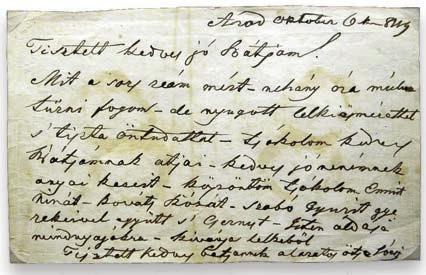 Arad Oktober 6kán 849
Tisztelt kedves jó Bátyám!
Mit a sors reám mért – néhány óra múlva
tűrni fogom – de nyugott lelkiismérettel
s' tiszta öntudattal – Csókolom kedves
Bátyámnak atyai – kedves jó nénémnek
anyai kezeit – köszöntöm Csókolom
Ninát – Kováts – Szabó Gyurit gye
rekeivel együtt s' – Isten áldása
mindnyájukra – kivánja lelkéből
Tisztelt kedves Bátyámnak alázatos öttse